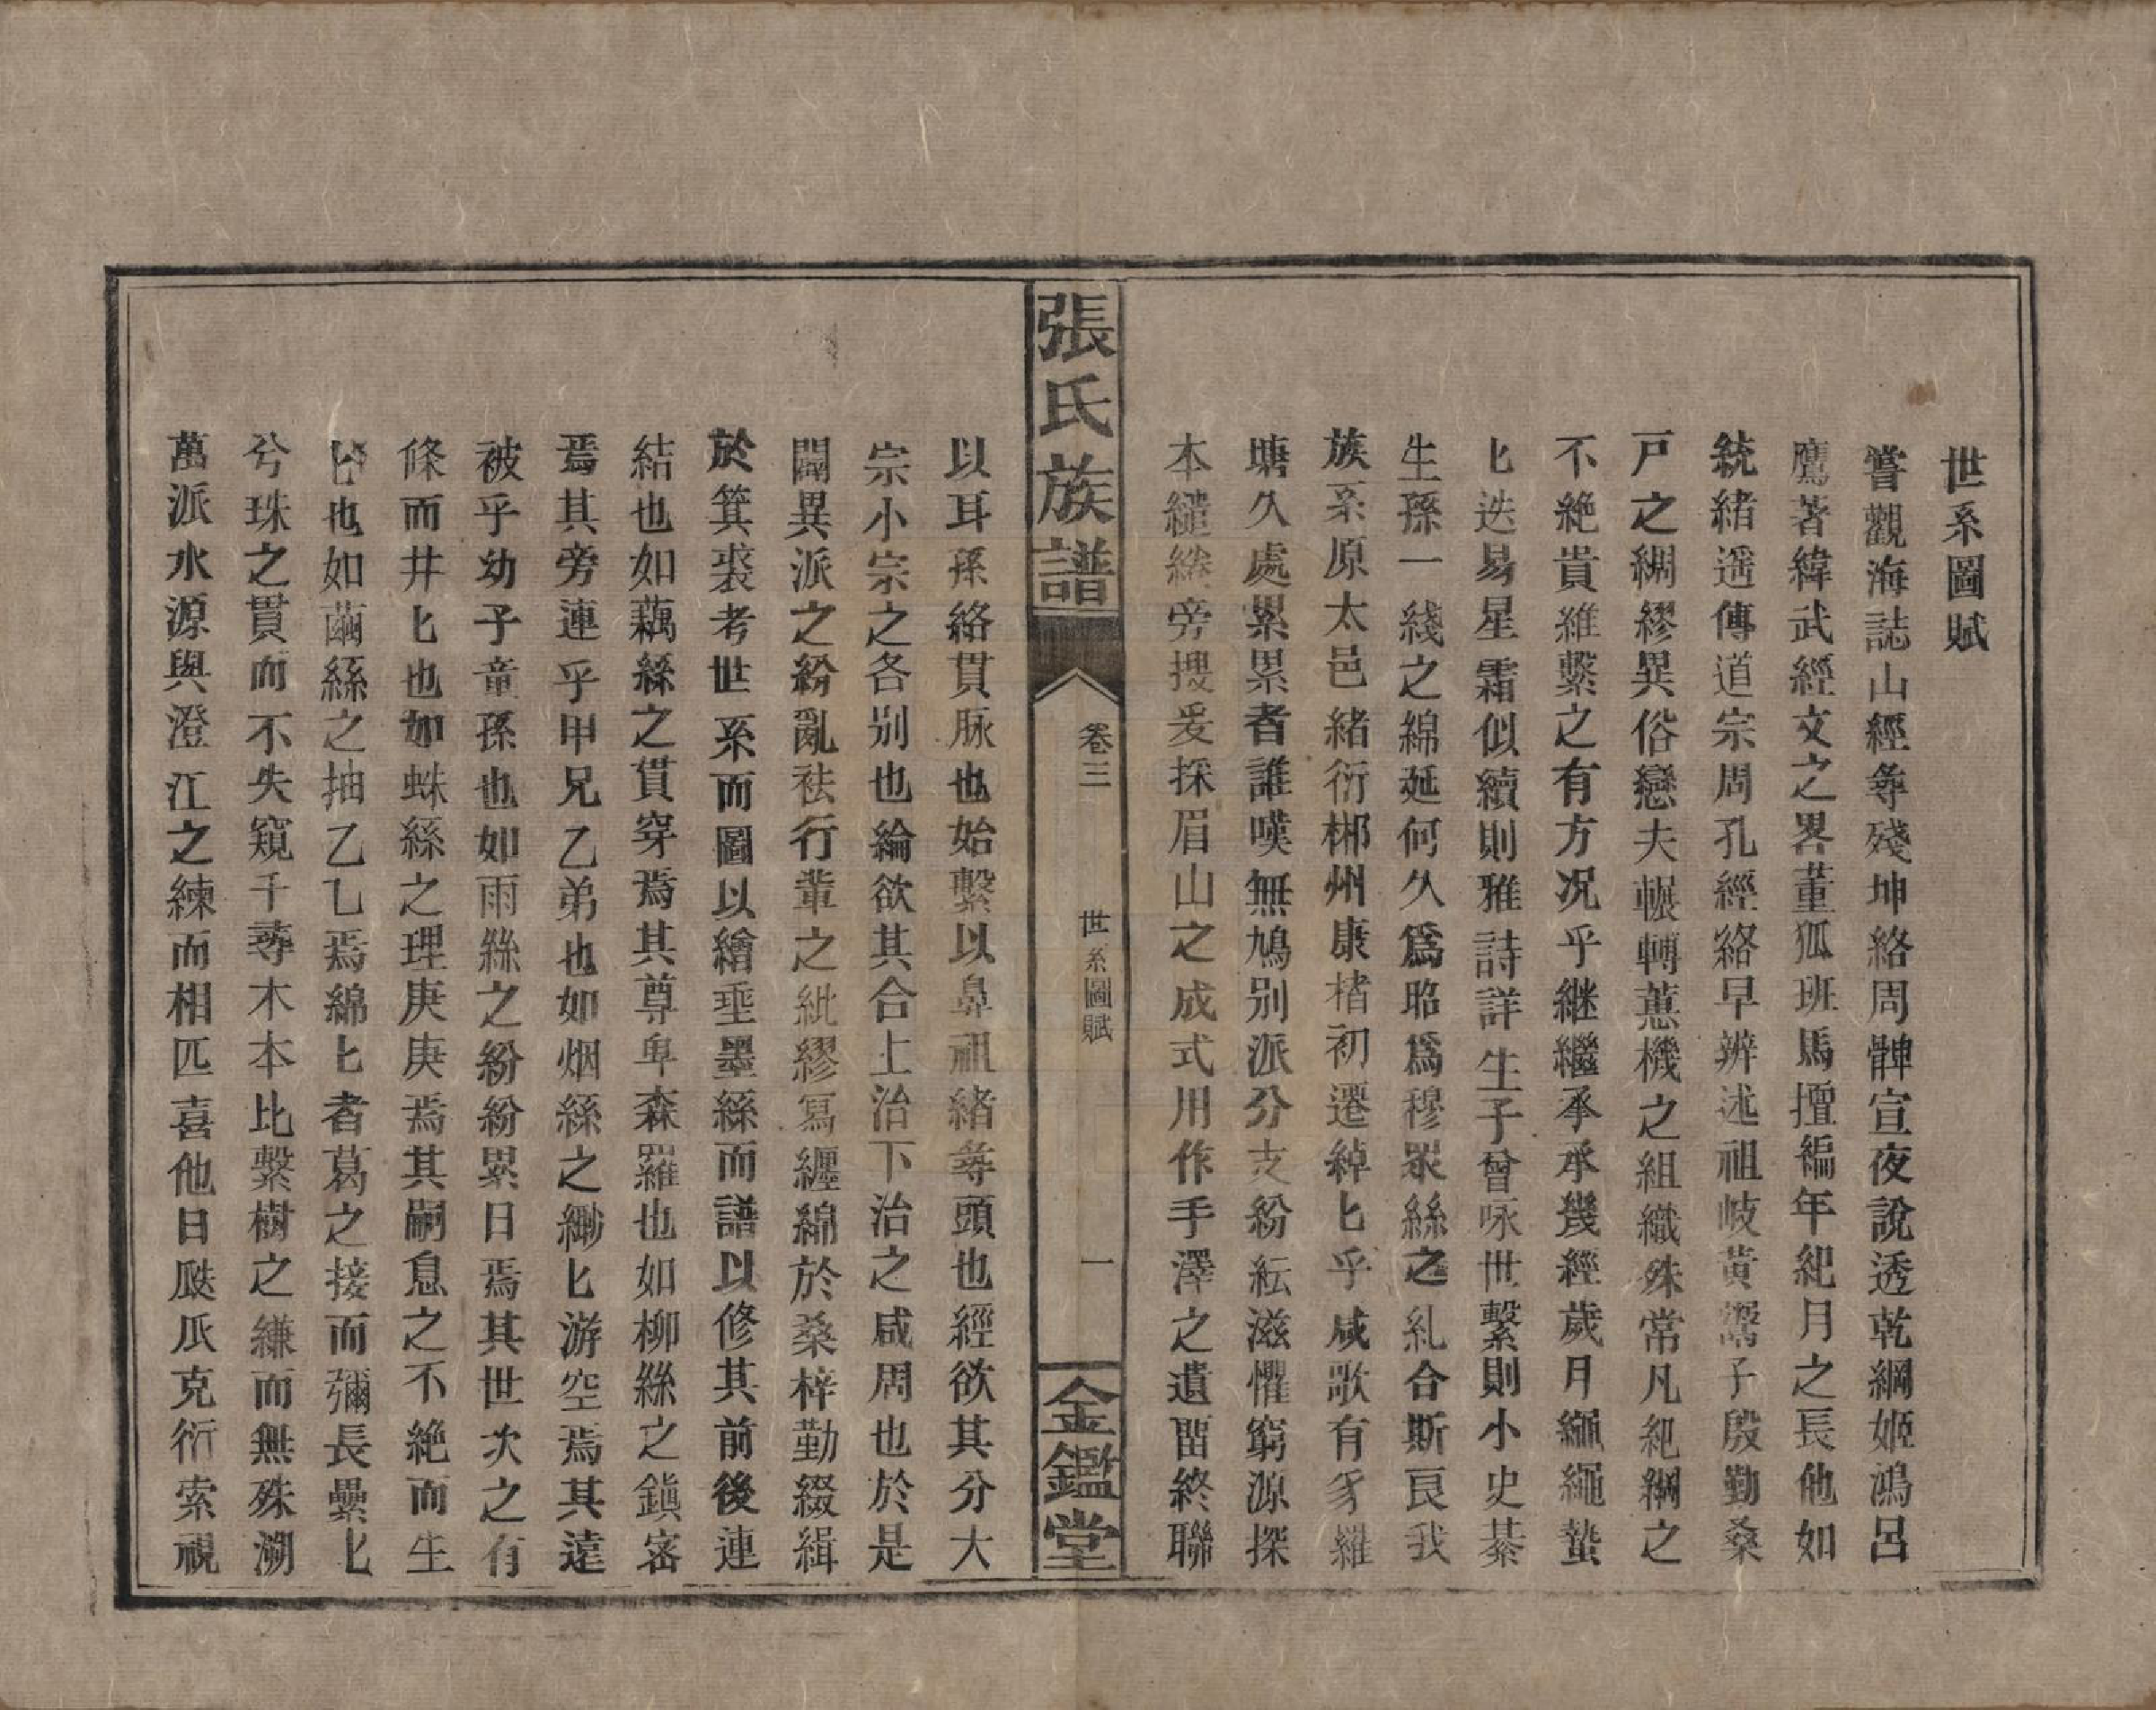 世系圖賦
嘗觀海誌山經㝷殘坤絡周髀宣夜說透乾綱姬鴻呂
鷹著緯武經文之畧董狐班馬擅編年紀月之長他如
統緒遥傳道宗周孔經絡早辨述祖岐黄孺子殷勤桑
戸之綢繆異俗戀夫輾轉蕙機之組織殊常凡紀綱之
不絶貴維繫之有方况乎継繼承承幾經歲月繩繩蟄
匕迭易星霜似續則雅詩詳生子曾咏世繫則小史綦
生孫一綫之綿延何久爲昭爲穆眾絲之糺合斯良我
族系原太邑緒衍郴州康楮初遷綽匕乎咸歌有豸羅
塘久處累累者誰嘆無鳩别派分支紛紜滋懼窮源探
本繾綣旁搜爰採眉山之成式用作手澤之遺畱終聯
張氏族譜
卷三
世系圖賦
一
金鑑堂
以耳孫絡貫脉也始繫以鼻祖緒㝷頭也經欲其分大
宗小宗之各别也綸欲其合上治下治之咸周也於是
闢異派之紛亂袪行輩之紕繆寫纏綿於桑梓勤綴緝
於箕裘考世系而圖以繪垂墨絲而譜以修其前後連
結也如藕絲之貫穿焉其尊卑森羅也如柳絲之鎭宻
焉其旁連乎甲兄乙弟也如烟絲之緲匕游空焉其遠
被乎幼子童孫也如雨絲之紛紛累日焉其世次之有
條而井匕也如蛛絲之理庚庚焉其嗣息之不絶而生
匕也如繭絲之抽乙乙焉綿匕者葛之接而彌長纍匕
兮珠之貫而不失窺千㝷木本比繫樹之縑而無殊溯
萬派水源與澄江之練而相匹喜他日瓞瓜克衍索視